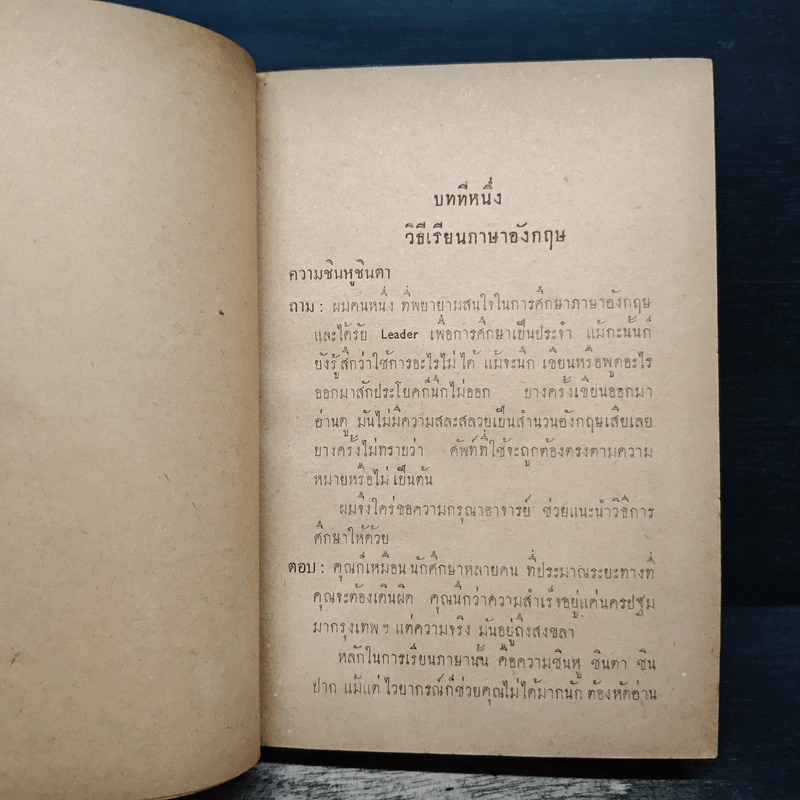 บทที่หนึ่ง
วิธีเรียนภาษาอังกฤษ
ความชินหูชินตา
ถาม : ผมคนหนึ่ง ที่พยายามสนใจในการศึกษาภาษาอังกฤษ
และได้รับ Leader เพื่อการศึกษาเป็นประจำ แม้กะนั้นก็
ยังรู้สึกว่าใช้การอะไรไม่ได้ แม้จะนึก เขียนหรือพูดอะไร
ออกมาสักประโยคก็นึกไม่ออก บางครั้งเขียนออกมา
อ่านดู มันไม่มีความสละสลวยเป็นสำนวนอังกฤษเสียเลย
บางครั้งไม่ทราบว่า ศัพท์ที่ใช้จะถูกต้องตรงตามความ
หมายหรือไม่ เป็นต้น
ผมจึงใคร่ขอความกรุณาอาจารย์ ช่วยแนะนำวิธีการ
ศึกษาให้ด้วย
ตอบ : คุณก็เหมือนนักศึกษาหลายคน ที่ประมาณระยะทางที่
คุณจะต้องเดินผิด คุณนึกว่าความสำเร็จอยู่แค่นครปฐม
มากรุงเทพฯ แต่ความจริง มันอยู่ถึงสงขลา
หลักในการเรียนภาษานั้น คือความชินหู ชินตา ชิน
ปาก แม้แต่ไวยากรณ์ก็ช่วยคุณไม่ได้มากนัก ต้องหัดอ่าน